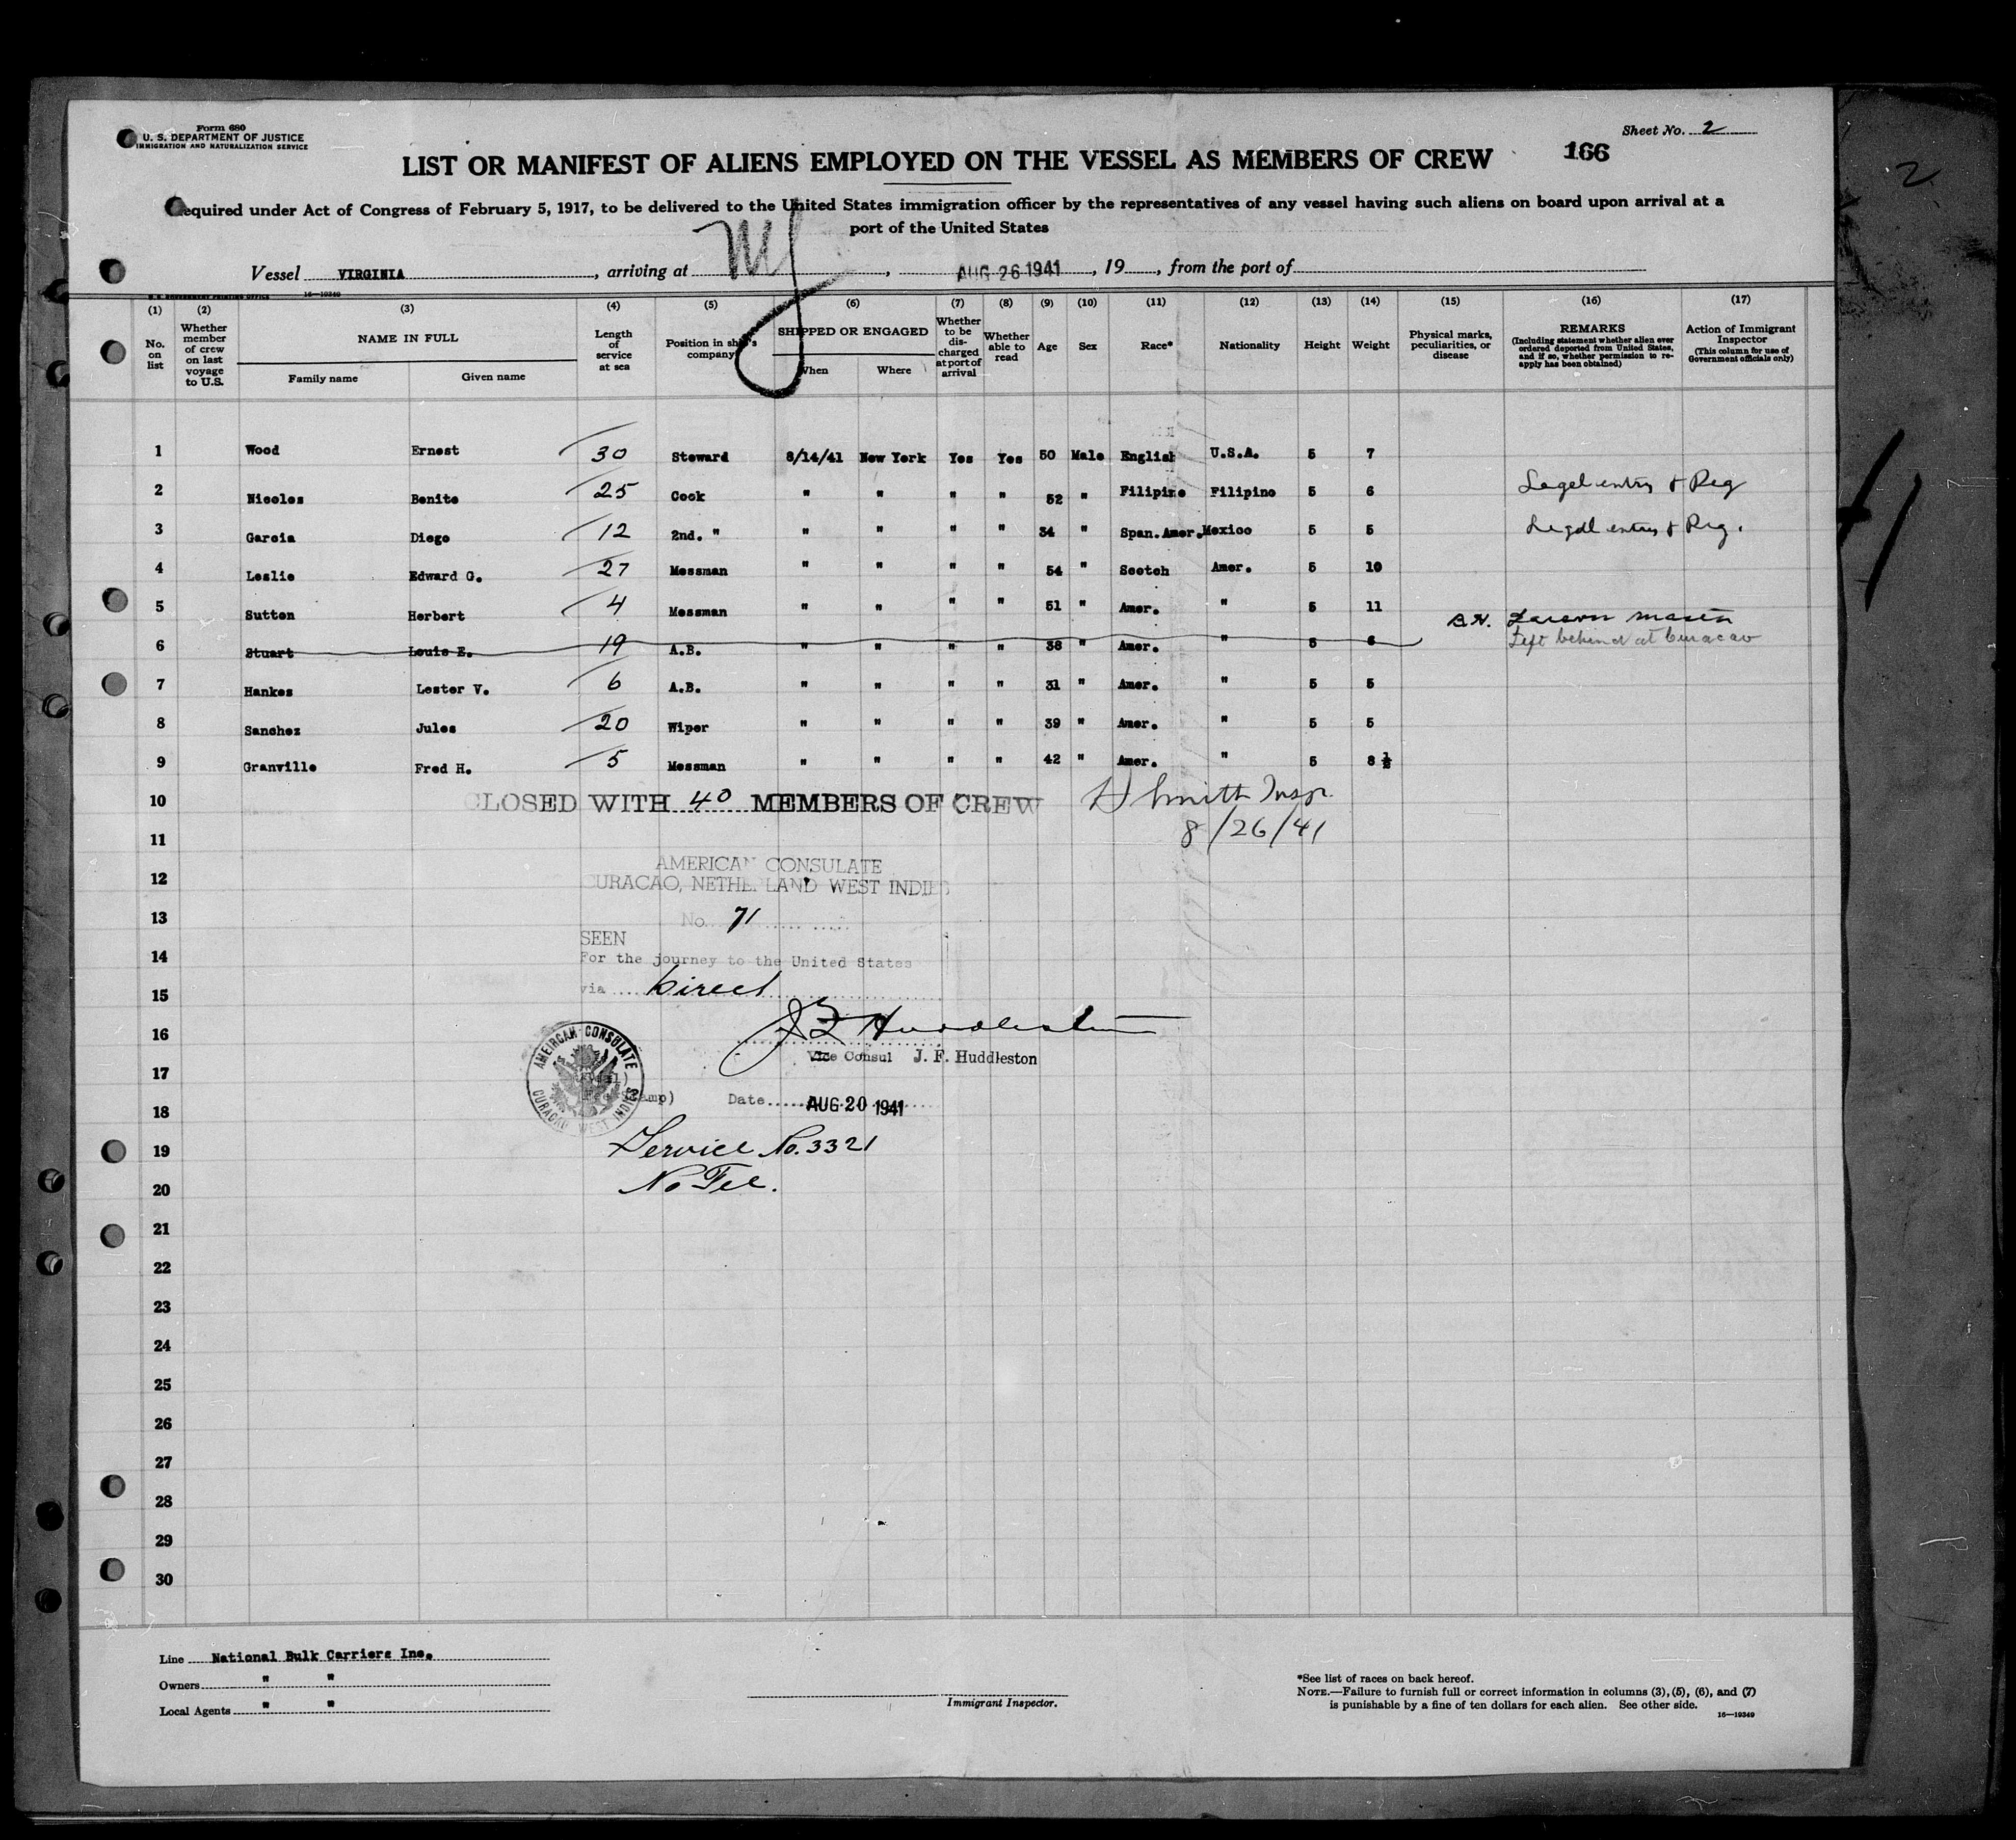 Form 680
U. S. DEPARTMENT OF JUSTICE
IMMIGRATION AND NATURALIZATION SERVICE
Sheet No. 2
LIST OR MANIFEST OF ALIENS EMPLOYED ON THE VESSEL AS MEMBERS OF CREW 166
Required under Act of Congress of February 5, 1917, to be delivered to the United States immigration officer by the representatives of any vessel having such aliens on board upon arrival at a
port of the United States
Vessel VIRGINIA, arriving at NY, AUG 26 1941, 19, from the port of
U. S. GOVERNMENT PRINTING OFFICE 16—19349
(1) No. on list
(2) Whether member of crew on last voyage to U.S.
(3) NAME IN FULL Family name Given name
(4) Length of service at sea
(5) Position in ship's company
(6) SHIPPED OR ENGAGED When Where
(7) Whether to be discharged at port of arrival
(8) Whether able to read
(9) Age
(10) Sex
(11) Race*
(12) Nationality
(13) Height
(14) Weight
(15) Physical marks, peculiarities, or disease
(16) REMARKS (Including statement whether alien ever ordered deported from United States, and if so, whether permission to re-apply has been obtained)
(17) Action of Immigrant Inspector (This column for use of Government officials only)
1 Wood Ernest 30 Steward 8/14/41 New York Yes Yes 50 Male English U.S.A. 5 7
2 Nicoles Benito 25 Cook " " " " 52 " Filipino Filipino 5 6 Legal entry & Reg
3 Garcia Diego 12 2nd. " " " " " 34 " Span.Amer. Mexico 5 5 Legal entry & Reg.
4 Leslie Edward G. 27 Messman " " " " 54 " Scotch Amer. 5 10
5 Sutton Herbert 4 Messman " " " " 51 " Amer. " 5 11
B.H. Larson Master
6 Stuart Louis E. 19 A.B. " " " " 38 " Amer. " 5 6 Left behind at Curacao
7 Hankes Lester V. 6 A.B. " " " " 31 " Amer. " 5 5
8 Sanchez Jules 20 Wiper " " " " 39 " Amer. " 5 5
9 Granville Fred H. 5 Messman " " " " 42 " Amer. " 5 8 ½
10 CLOSED WITH 40 MEMBERS OF CREW H Smith Insp.
11 8/26/41
AMERICAN CONSULATE
12 CURACAO, NETHERLAND WEST INDIES
13 No. 71
SEEN
14 For the journey to the United States
15 via Direct
16 J F Huddleston
Vice Consul J. F. Huddleston
17
AMERICAN CONSULATE CURACAO WEST INDIES
18 Date AUG 20 1941
19 Service No. 3321
20 No Fee.
21
22
23
24
25
26
27
28
29
30
Line National Bulk Carriers Inc.
Owners " "
Local Agents " "
Immigrant Inspector.
*See list of races on back hereof.
NOTE.—Failure to furnish full or correct information in columns (3), (5), (6), and (7)
is punishable by a fine of ten dollars for each alien. See other side.
16—19349
2